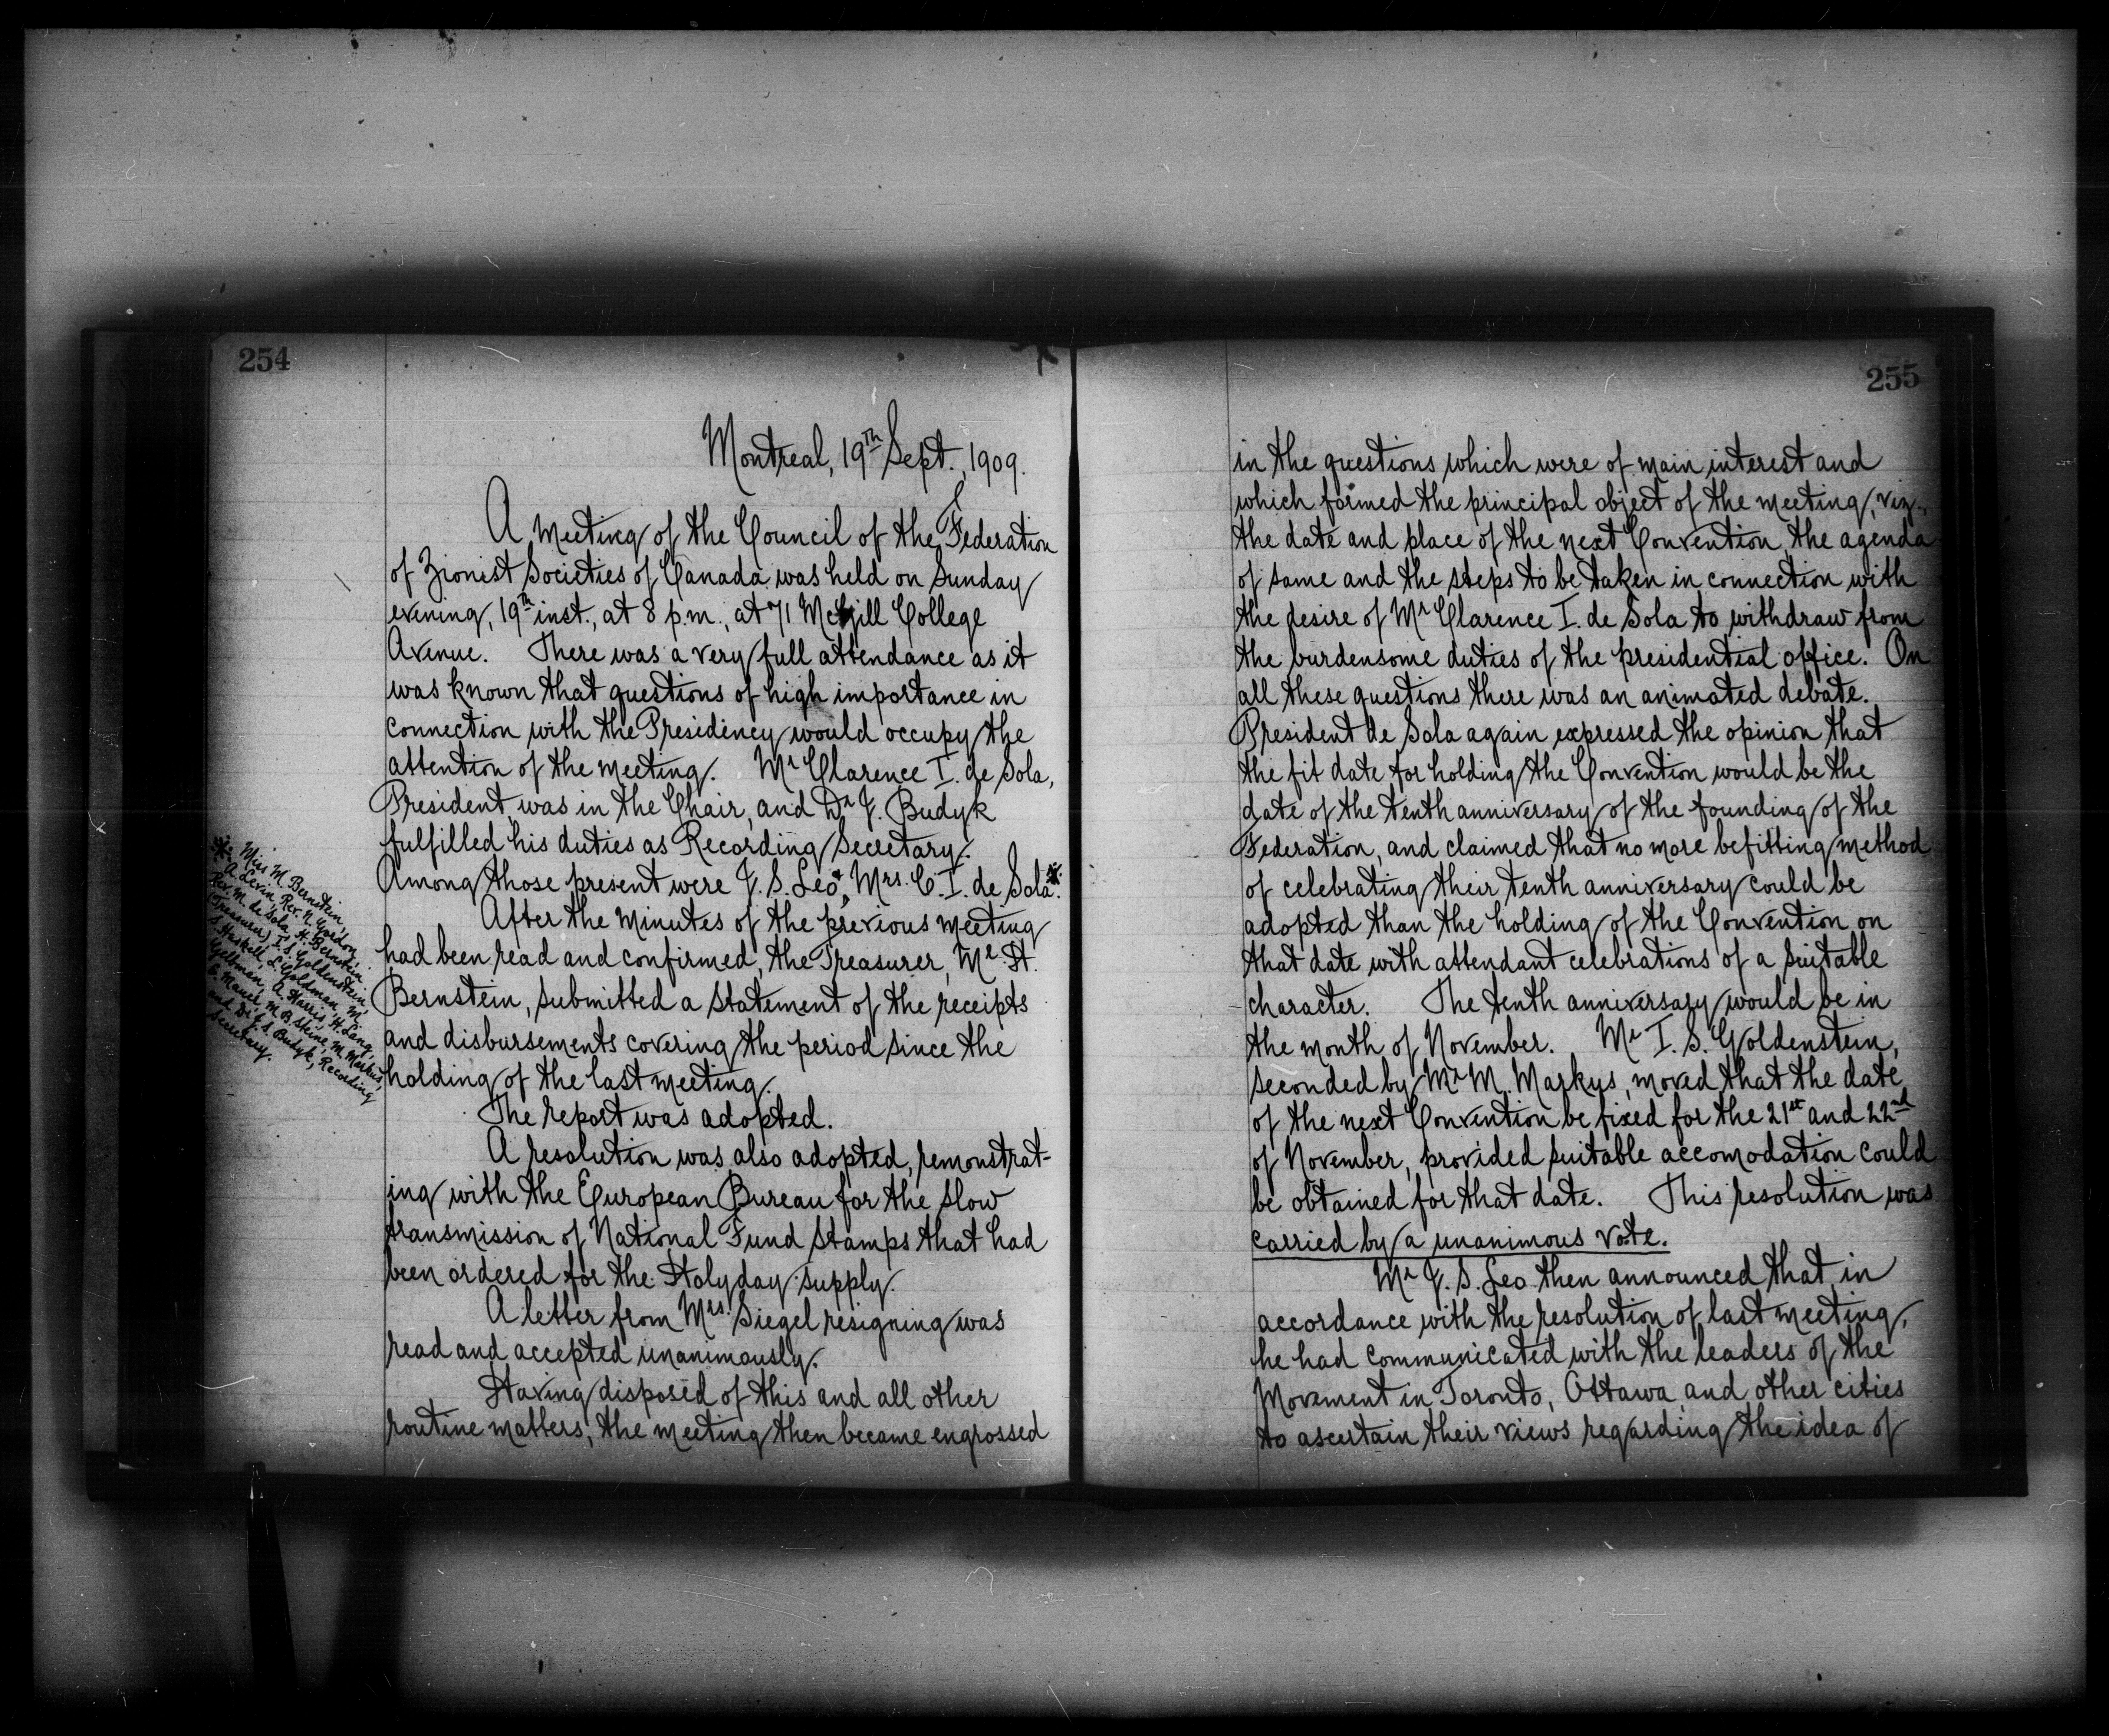 254
Montreal, 19th Sept., 1909.
A Meeting of the Council of the Federation
of Zionist Societies of Canada was held on Sunday
evening, 19th inst., at 8 p.m., at 71 McGill College
Avenue. There was a very full attendance as it
was known that questions of high importance in
connection with the Presidency would occupy the
attention of the meeting. Mr Clarence I. de Sola,
President, was in the Chair, and Dr J. Budyk
fulfilled his duties as Recording Secretary.
Among those present were J. S. Leo, Mrs. C. I. de Sola*.
After the Minutes of the previous meeting
had been read and confirmed, the Treasurer, Mr. H.
Bernstein, submitted a statement of the receipts
and disbursements covering the period since the
holding of the last meeting.
The report was adopted.
A resolution was also adopted, remonstrat-
ing with the European Bureau for the slow
transmission of National Fund Stamps that had
been ordered for the Holyday supply.
A letter from Mrs. Siegel resigning was
read and accepted unanimously.
Having disposed of this and all other
routine matters, the meeting then became engrossed
* Miss M. Bernstein,
A. Levin, Rev. N. Gordon,
Rev. M. de Sola, H. Bernstein
(Treasurer) I. S. Goldenstein,
S. Haskell, L. Goldman, M.
Gelbman, A. Harris, H. Lang,
E. Manel, M. B. Steine, M. Markus,
and Dr J. S. Budyk, Recording
Secretary.
255
in the questions which were of main interest and
which formed the principal object of the meeting, viz.,
the date and place of the next Convention, the agenda
of same and the steps to be taken in connection with
the desire of Mr Clarence I. de Sola to withdraw from
the burdensome duties of the presidential office. On
all these questions there was an animated debate.
President de Sola again expressed the opinion that
the fit date for holding the Convention would be the
date of the tenth anniversary of the founding of the
Federation, and claimed that no more befitting method
of celebrating their tenth anniversary could be
adopted than the holding of the Convention on
that date with attendant celebrations of a suitable
character. The tenth anniversary would be in
the month of November. Mr I. S. Goldenstein,
seconded by Mr M. Markus, moved that the date
of the next Convention be fixed for the 21st and 22nd
of November, provided suitable accomodation could
be obtained for that date. This resolution was
carried by a unanimous vote.
Mr J. S. Leo then announced that in
accordance with the resolution of last meeting,
he had communicated with the leaders of the
Movement in Toronto, Ottawa and other cities
to ascertain their views regarding the idea of